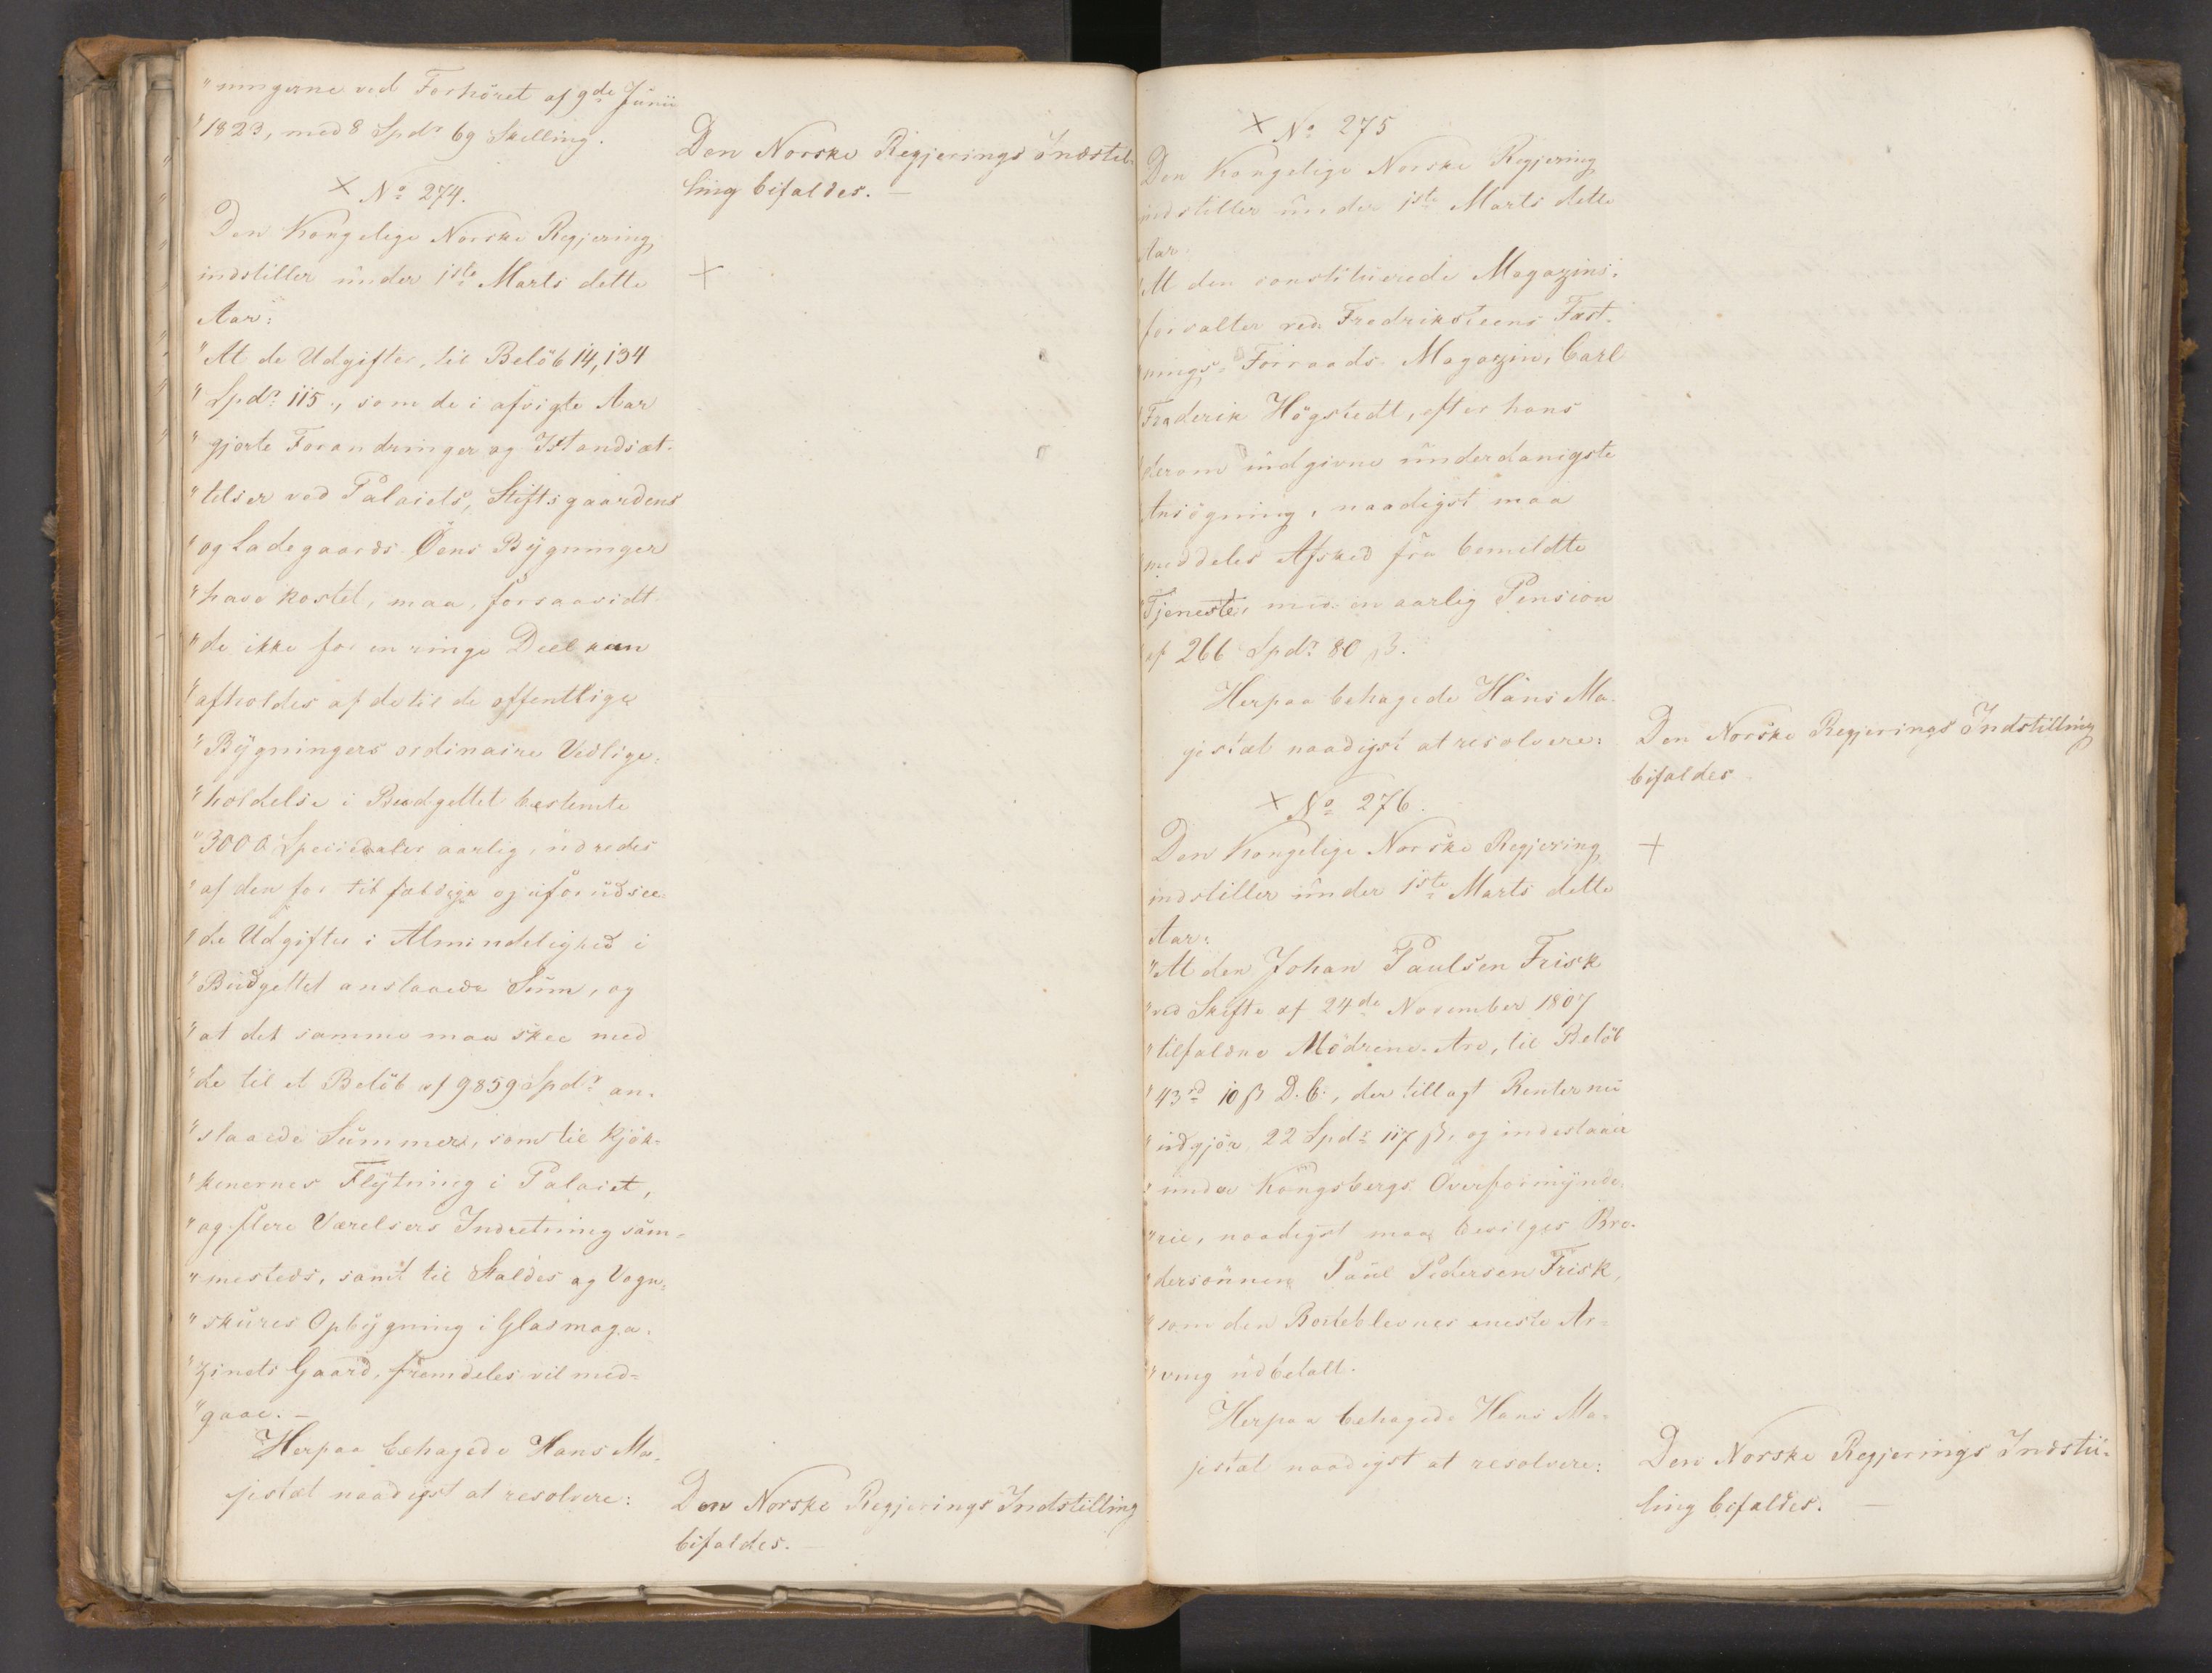 "ningerne ved Forhöret af 9de Junii
"1823, med 8 Spdr 69 Skilling.
Den Norske Regjerings Indstil-
ling bifaldes. —
× No 274.
Den Kongelige Norske Regjering
indstiller under 1ste Marts dette
Aar:
"At de Udgifter, til Belöb 14,134
"Spdr 115., som de i afvigte Aar
"gjorte Forandringer og Istandsæt-
"telser ved Palaiets, Stiftsgaardens
"og Ladegaards Öens Bygninger
"have kostet, maa, forsaavidt
"de ikke for en ringe Deel kan
"afholdes af de til de offentlige
"Bygningers ordinaire Vedlige-
"holdelse i Budgettet bestemte
"3000 Speciedaler aarlig, udredes
"af den for tilfældige og uforudsee-
"de Udgifter i Almindelighed i
"Budgettet anslaaede Sum, og
"at det samme maa skee med
"de til et Belöb af 9859 Spdr an-
"slaaede Summer, som til Kjök-
"kenernes Flytning i Palaiet,
"og flere Værelsers Indretning sam-
"mesteds, samt til Staldes og Vogn-
"skures Opbygning i Glasmaga-
"zinets Gaard, fremdeles vil med-
"gaae. —
Herpaa behagede Hans Ma-
jestæt naadigst at resolvere:
Den Norske Regjerings Indstilling
bifaldes. —
× No 275
Den Kongelige Norske Regjering
indstiller under 1ste Marts dette
Aar:
"At den constituerede Magazins-
forvalter ved Fredriksteens Fæst-
nings Forraads Magazin, Carl
Frederik Högstedt, efter hans
derom indgivne underdanigste
Ansögning, naadigst maa
meddeles Afsked fra bemeldte
Tjeneste, med en aarlig Pension
af 266 Spdr 80 ß.
Herpaa behagede Hans Ma-
jestæt naadigst at resolvere:
Den Norske Regjerings Indstilling
bifaldes
× No 276.
Den Kongelige Norske Regjering
indstiller under 1ste Marts dette
Aar:
"At den Johan Paulsen Frisk
"ved Skifte af 24de November 1807
"tilfaldne Mödrene-Arv, til Belöb
"43rd 10 ß D. C., der tillagt Renter nu
"udgjör 22 Spdr 117 ß, og indestaaer
"under Kongsbergs Overformynde-
"rie, naadigst maa bevilges Bro-
"dersönnen Paul Pedersen Frisk,
"som den Borteblevnes eneste Ar-
"ving udbetalt.
Herpaa behagede Hans Ma-
jestæt naadigst at resolvere:
Den Norske Regjerings Indstil-
ling bifaldes. —